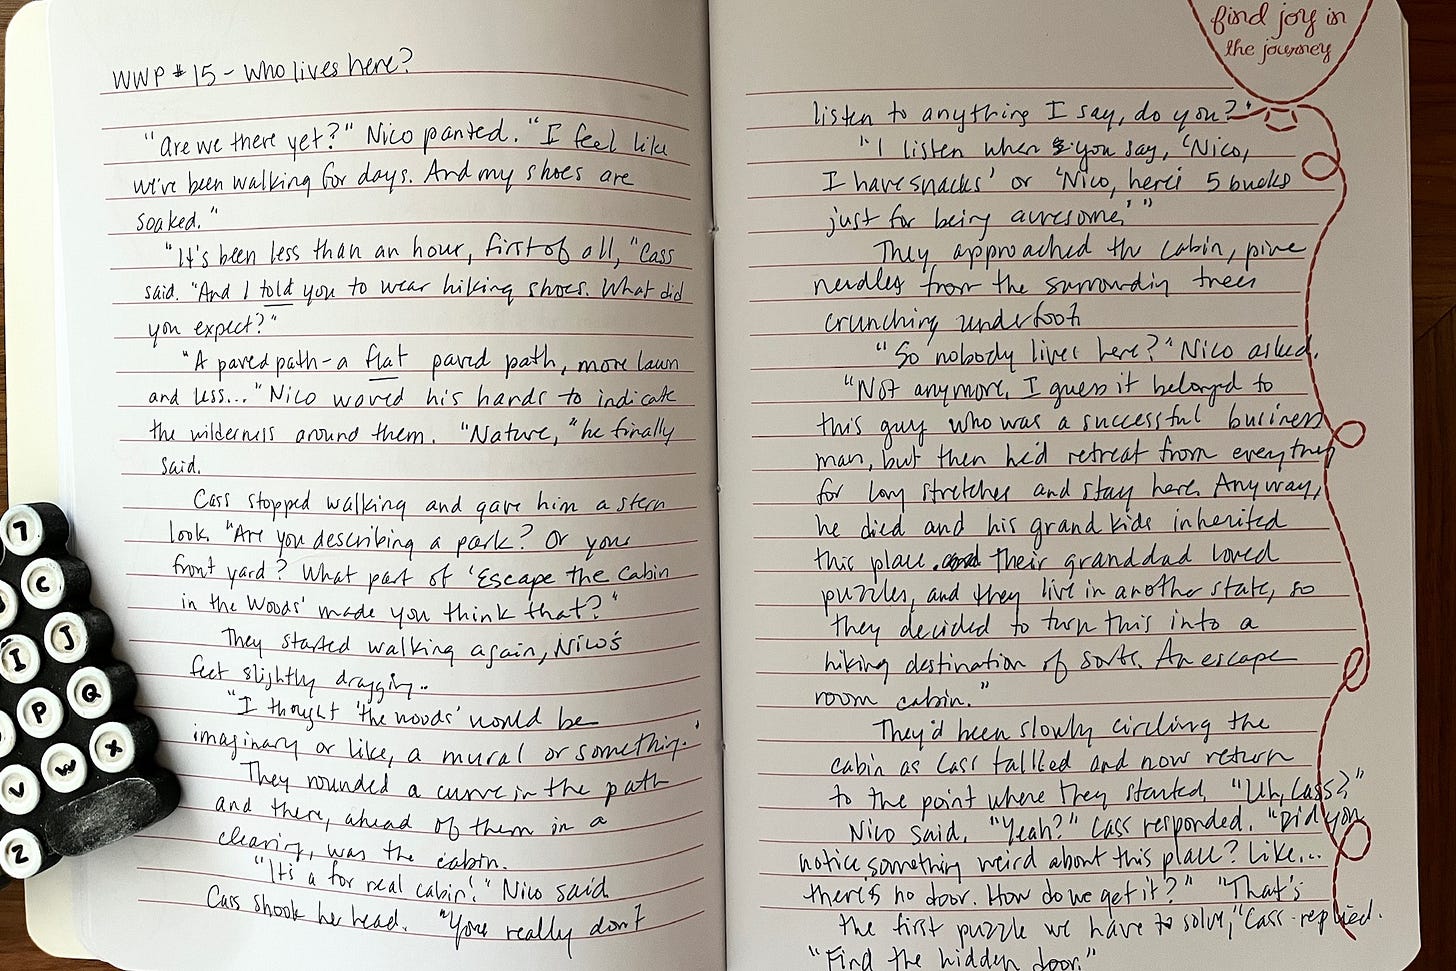 WWP #15 - Who lives here?
"Are we there yet?" Nico panted. "I feel like
we've been walking for days. And my shoes are
soaked."
"It's been less than an hour, first of all," Cass
said. "And I told you to wear hiking shoes. What did
you expect?"
"A paved path - a flat paved path, more lawn
and less..." Nico waved his hands to indicate
the wilderness around them. "Nature," he finally
said.
Cass stopped walking and gave him a stern
look. "Are you describing a park? Or your
front yard? What part of 'Escape the Cabin
in the Woods' made you think that?"
They started walking again, Nico's
feet slightly dragging.
"I thought 'the woods' would be
imaginary or like, a mural or something."
They rounded a curve in the path
and there, ahead of them in a
clearing, was the cabin.
"It's a for real cabin!" Nico said.
Cass shook her head. "You really don't
find joy in
the journey
listen to anything I say, do you?"
"I listen when you say, 'Nico,
I have snacks' or 'Nico, here's 5 bucks
just for being awesome.'"
They approached the cabin, pine
needles from the surroundin trees
crunching underfoot.
"So nobody lives here?" Nico asked.
"Not anymore. I guess it belonged to
this guy who was a successful business
man, but then he'd retreat from everything
for long stretches and stay here. Anyway,
he died and his grandkids inherited
this place. Their granddad loved
puzzles, and they live in another state, so
they decided to turn this into a
hiking destination of sorts. An escape
room cabin."
They'd been slowly circling the
cabin as Cass tallked and now return
to the point where they started. "Uh, Cass?"
Nico said. "Yeah?" Cass responded. "Did you
notice something weird about this place? Like...
there's no door. How do we get it?" "That's
the first puzzle we have to solve," Cass replied.
"Find the hidden door."
7
C
J
I
Q
P
X
W
V
Z